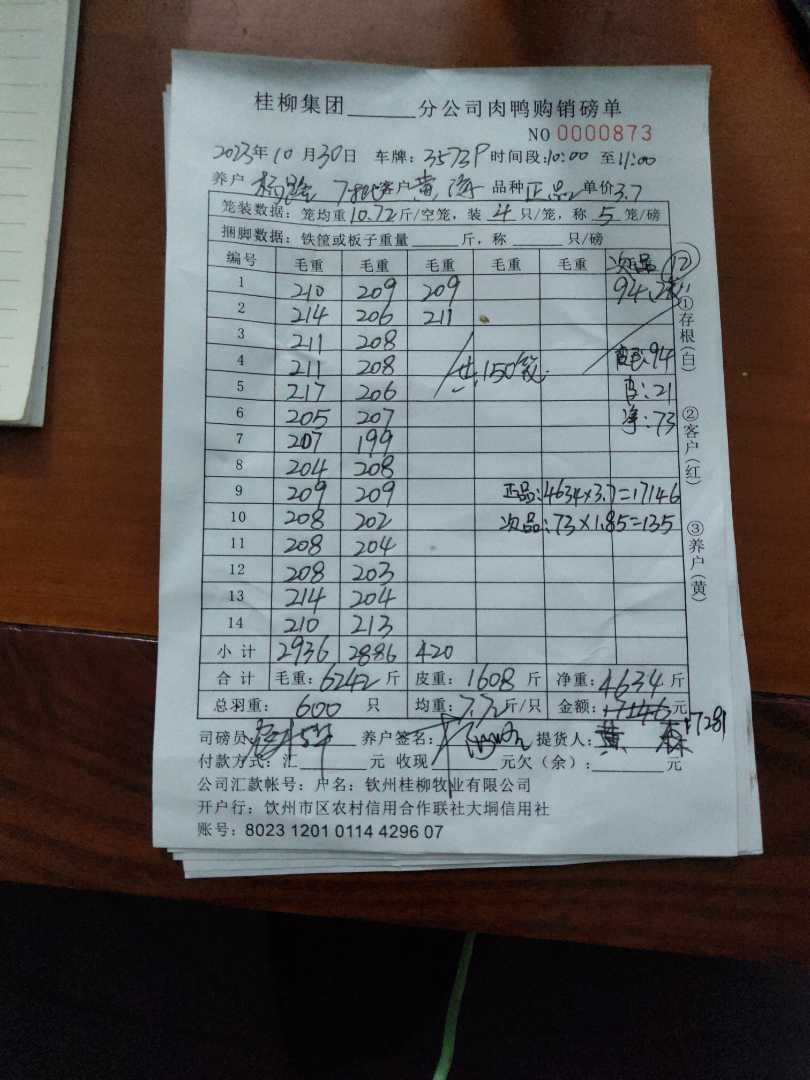 桂柳集团______分公司肉鸭购销磅单
NO 0000873
2023年10月30日 车牌:3573P 时间段:10:00 至11:00
养户 客户 黄 品种 正品 单价3.7
笼装数据:笼均重10.72斤/空笼,装4只/笼,称5笼/磅
捆脚数据:铁筐或板子重量______斤,称______只/磅
编号 毛重 毛重 毛重 毛重 毛重 次品 12
1 210 209 209 94
2 214 206 211
3 211 208
4 211 208 共150笼 94
5 217 206 皮:21
6 205 207 净:73
7 207 199
8 204 208
9 209 209 正品:4634×3.7=17146
10 208 202 次品:73×1.85=135
11 208 204
12 208 203
13 214 204
14 210 213
小计 2936 2886 420
合计 毛重:6242斤 皮重:1608斤 净重:4634斤
总羽重: 600 只 均重:7.7斤/只 金额: 元
17281
司磅员: 养户签名: 提货人:黄森
付款方式:汇______元 收现______元欠(余):______元
公司汇款帐号:户名:钦州桂柳牧业有限公司
开户行:钦州市区农村信用合作联社大垌信用社
账号:8023 1201 0114 4296 07
①存根(白) ②客户(红) ③养户(黄)